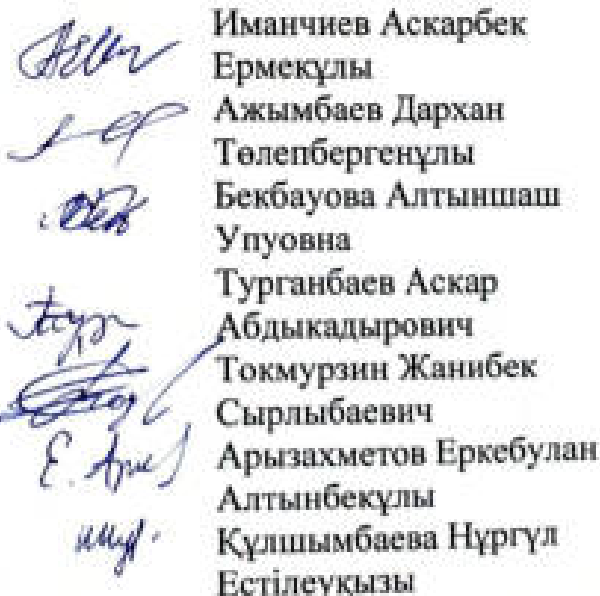 Иманчиев Аскарбек
Ермекұлы
Ажымбаев Дархан
Төлепбергенұлы
Бекбауова Алтыншаш
Упуовна
Турганбаев Аскар
Абдыкадырович
Токмурзин Жанибек
Сырлыбаевич
Е. Арыз Арызахметов Еркебулан
Алтынбекұлы
Құлшымбаева Нұргүл
Естілеуқызы